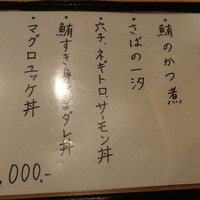 ・鮪のかつ煮
・さばの一汐
・穴子、ネギトロ、サーモン丼
・鮪すき身ごまダレ丼
・マグロユッケ丼
,000.-